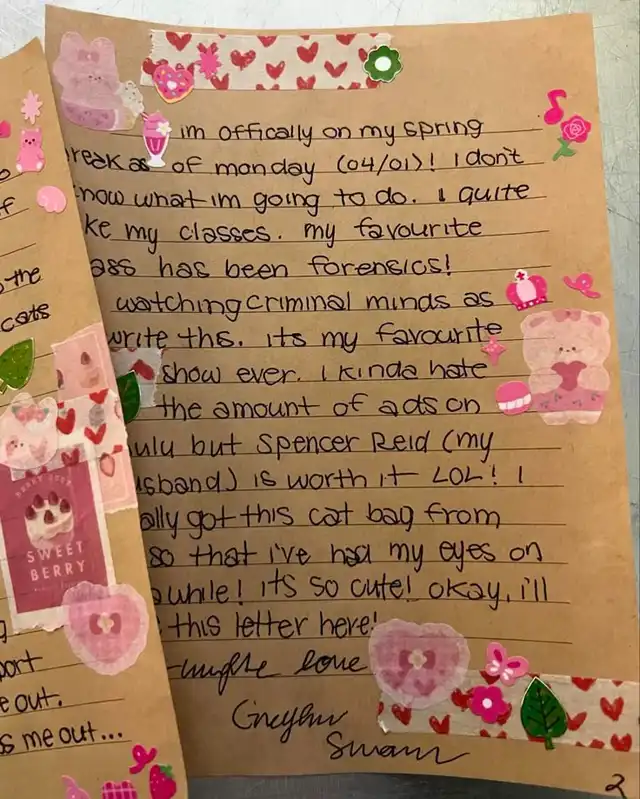 the
cats
SWEET
BERRY
port
e out.
s me out...
im offically on my spring
reak as of monday (04/01)! I don't
now what im going to do. I quite
ke my classes. my favourite
ass has been forensics!
watching criminal minds as
write ths. its my favourite
show ever. I kinda hate
the amount of ads on
ulu but spencer Reid (my
usband) is worth it LOL! I
ally got this cat bag from
so that i've had my eyes on
awhile! its so cute! okay, i'll
this letter here!
love
Swann
2